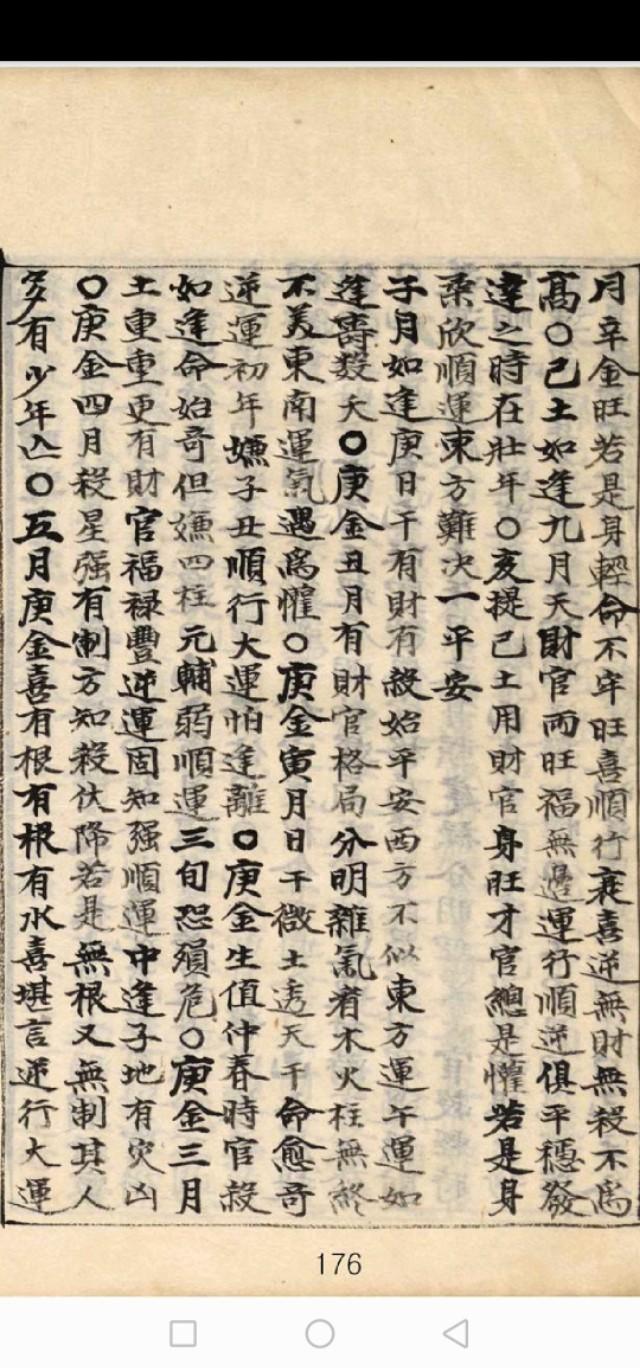 月辛金旺若是身輕命不牢旺喜順行衰喜逆無財無殺不為
高〇己土如逢九月天財官兩旺福無邊運行順逆俱平穩發
達之時在壯年〇亥提己土用財官身旺才官總是懽若是身
柔欣順運東方難决一平安
子月如逢庚日干有財有殺始平安西方不似東方運午運如
逢壽数夭〇庚金丑月有財官格局分明雜氣看木火柱無終
不美東南運氣遇為懽〇庚金寅月日干微土透天干命愈奇
逆運初年嫌子丑順行大運怕逢離〇庚金生值仲春時官殺
如逢命始奇但嫌四柱元輔弱順運三旬恐殞危〇庚金三月
土重重更有財官福禄豐逆運固知强順運中逢子地有灾凶
〇庚金四月殺星强有制方知殺伏降若是無根又無制其人
多有少年亾〇五月庚金喜有根有根有水喜堪言逆行大運
176